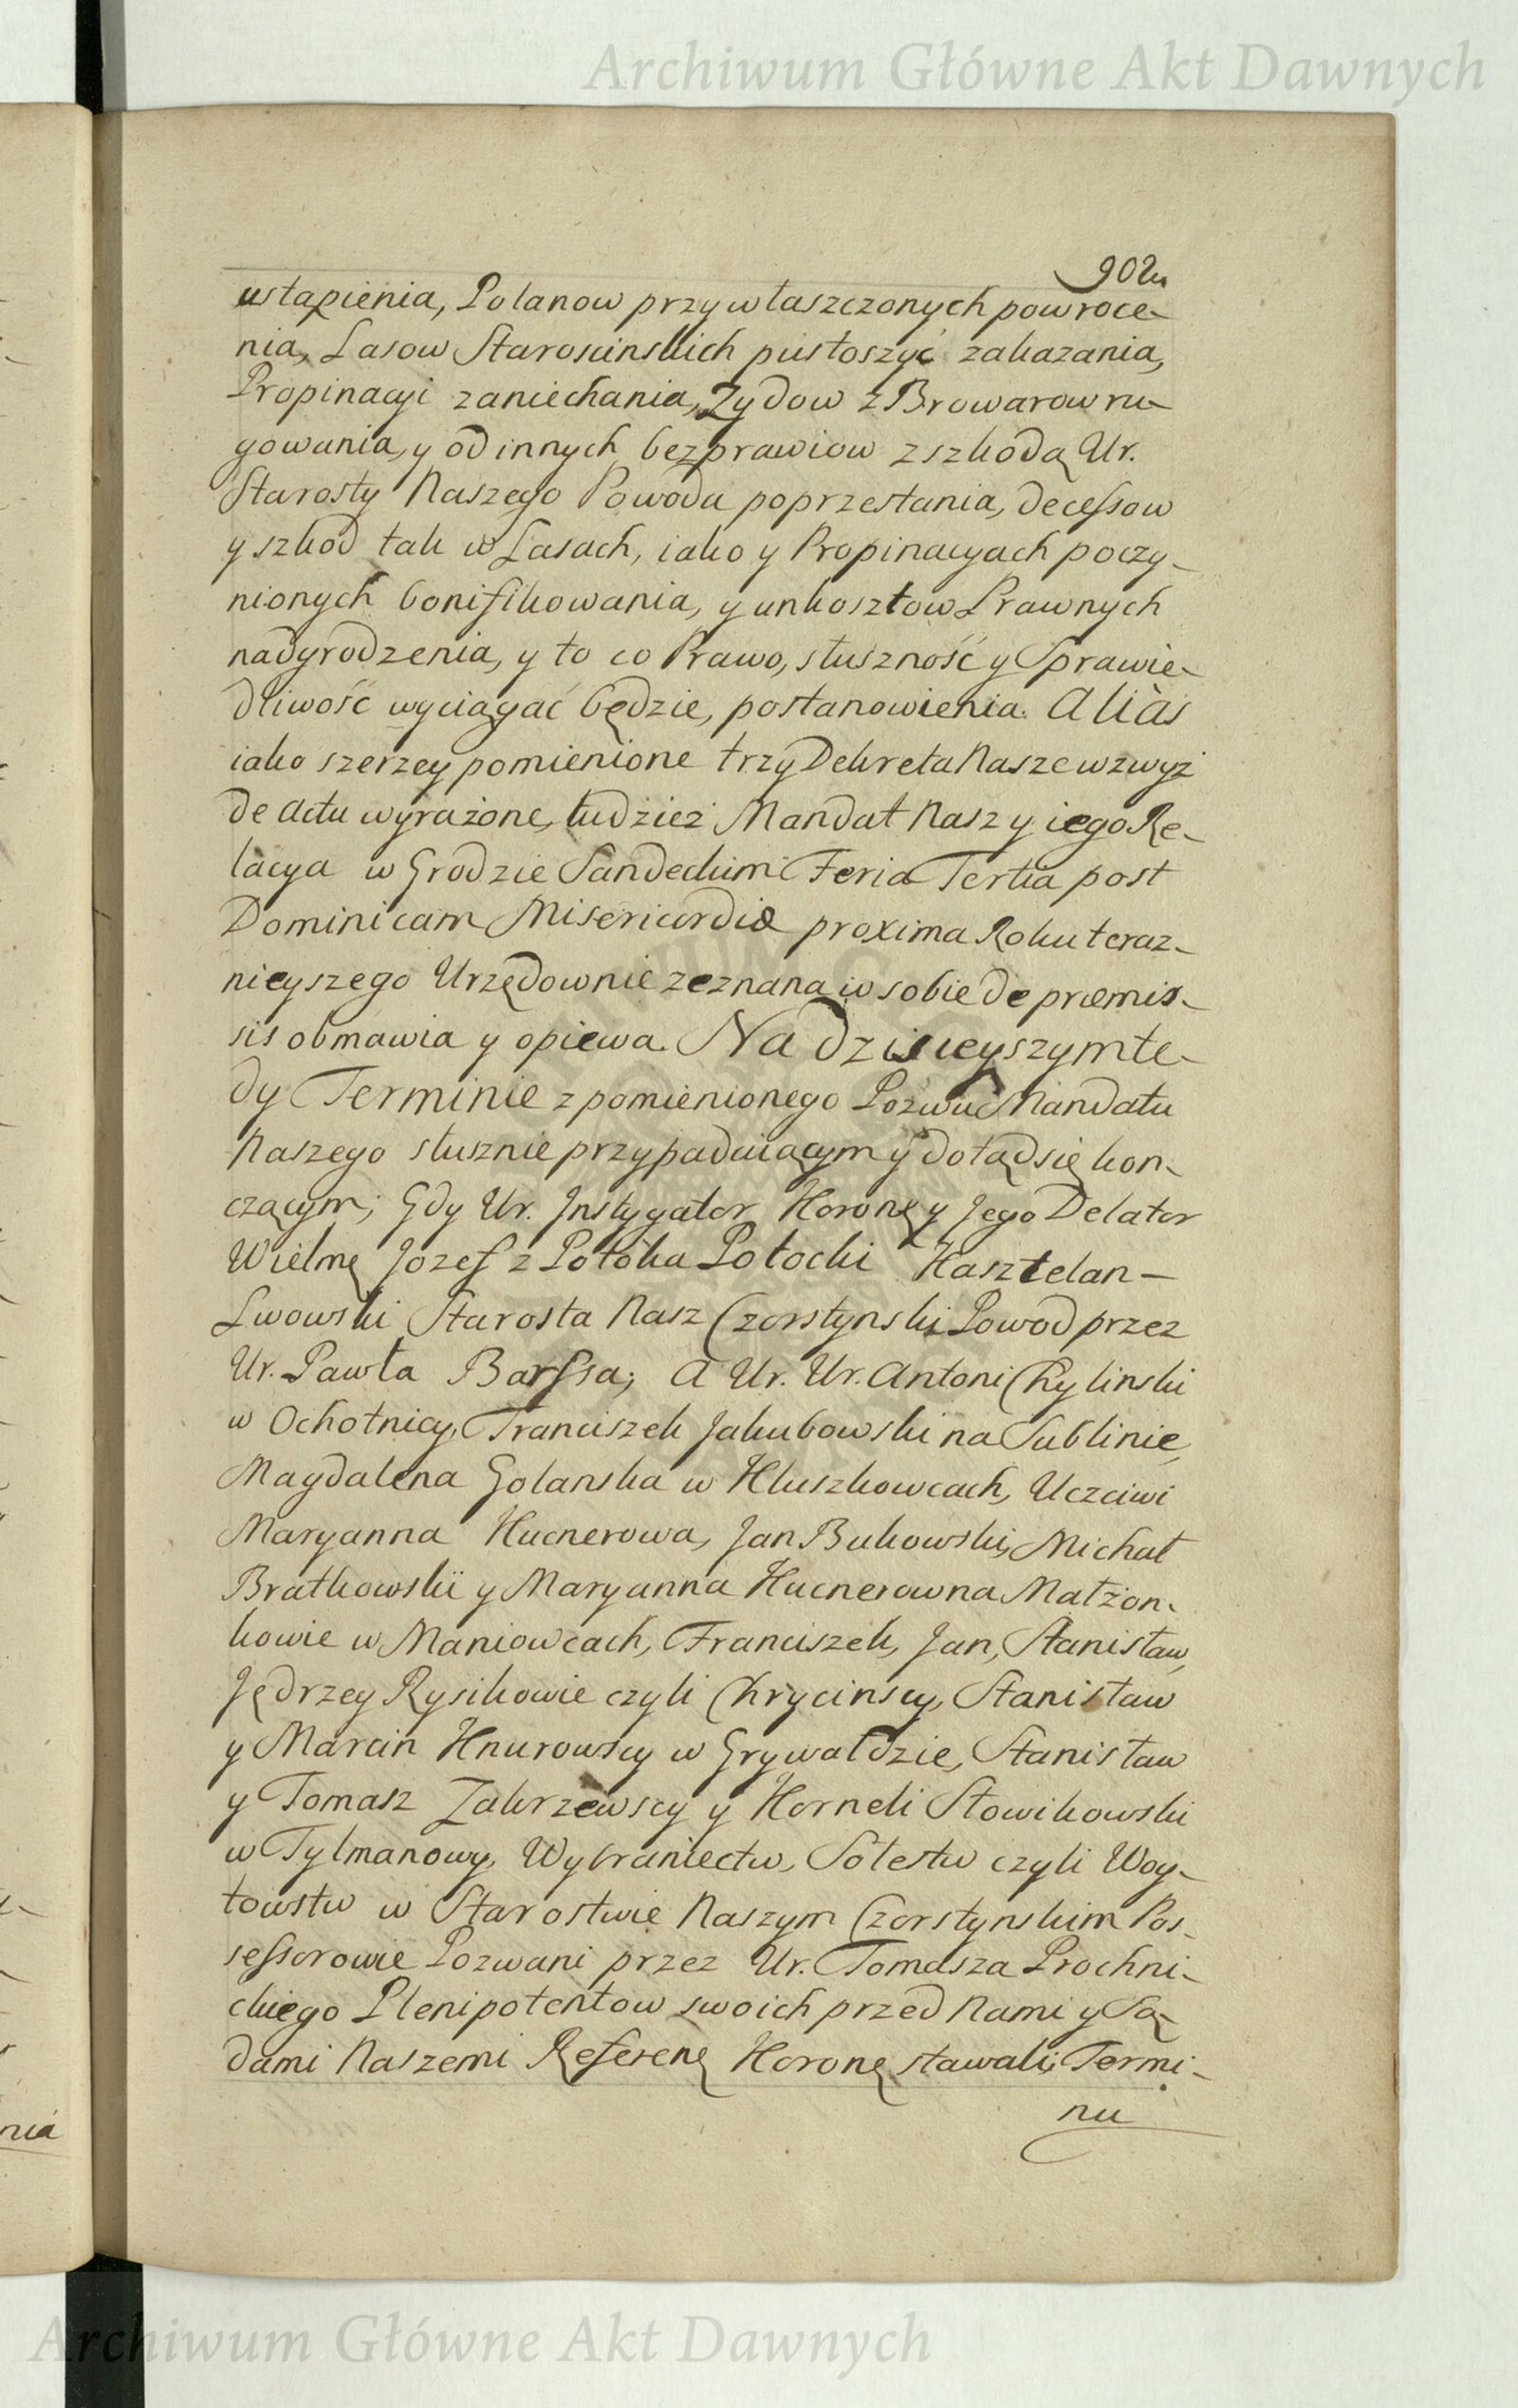 Archiwum Główne Akt Dawnych
902
ustąpienia, Polanow przywłaszczonych powroce-
nia, Lasow Staroscinskich pustoszyć zakazania,
Propinacyi zaniechania, Zydow z Browarow ru-
gowania, y od innych bezprawiow z szkodą Ur.
Starosty Naszego Powoda poprzestania, decessow
y szkod tak w Lasach, iako y Propinacyach poczy-
nionych bonifikowania, y unkosztow Prawnych
nadgrodzenia, y to co Prawo, słuszność y Sprawie-
dliwość wyciągać będzie, postanowienia. Alias
iako szerzey pomienione trzy Dekreta Nasze wzwyż
de Actu wyrażone, tudzież Mandat Nasz y iego Re-
lacya w Grodzie Sandeckim Feria Tertia post
Dominicam Misericordiæ proxima Roku teraz-
nieyszego Urzędownie zeznana w sobie de præmis-
sis obmawia y opiewa. Na dzisieyszym te-
dy Terminie z pomienionego Pozwu Mandatu
Naszego słusznie przypadaiącym y dotąd się kon-
czącym; Gdy Ur. Instygator Koronę y Jego Delator
Wielmę Jozef z Potoka Potocki Kasztelan –
Lwowski Starosta Nasz Czorstynski Powod przez
Ur. Pawła Barssa; A Ur. Ur. Antoni Chylinski
w Ochotnicy, Franciszek Jakubowski na Sublinie,
Magdalena Golanska w Kluszkowcach, Uczciwi
Maryanna Hucnerowa, Jan Bukowski, Michał
Bratkowski y Maryanna Hucnerowna Małżon-
kowie w Maniowcach, Franciszek, Jan, Stanisław,
Jędrzey Rysikowie czyli Chrycinscy, Stanisław
y Marcin Knurowscy w Grywałdzie, Stanisław
y Tomasz Zakrzewscy y Korneli Słowikowski
w Tylmanowy, Wybraniectw, Sołestw czyli Woy-
towstw w Starostwie Naszym Czorstynskim Pos-
sessorowie Pozwani przez Ur. Tomasza Prochni-
ckiego Plenipotentow swoich przed Nami y Są-
dami Naszemi Referenę Koronę stawali; Termi-
nu
nia
Archiwum Główne Akt Dawnych